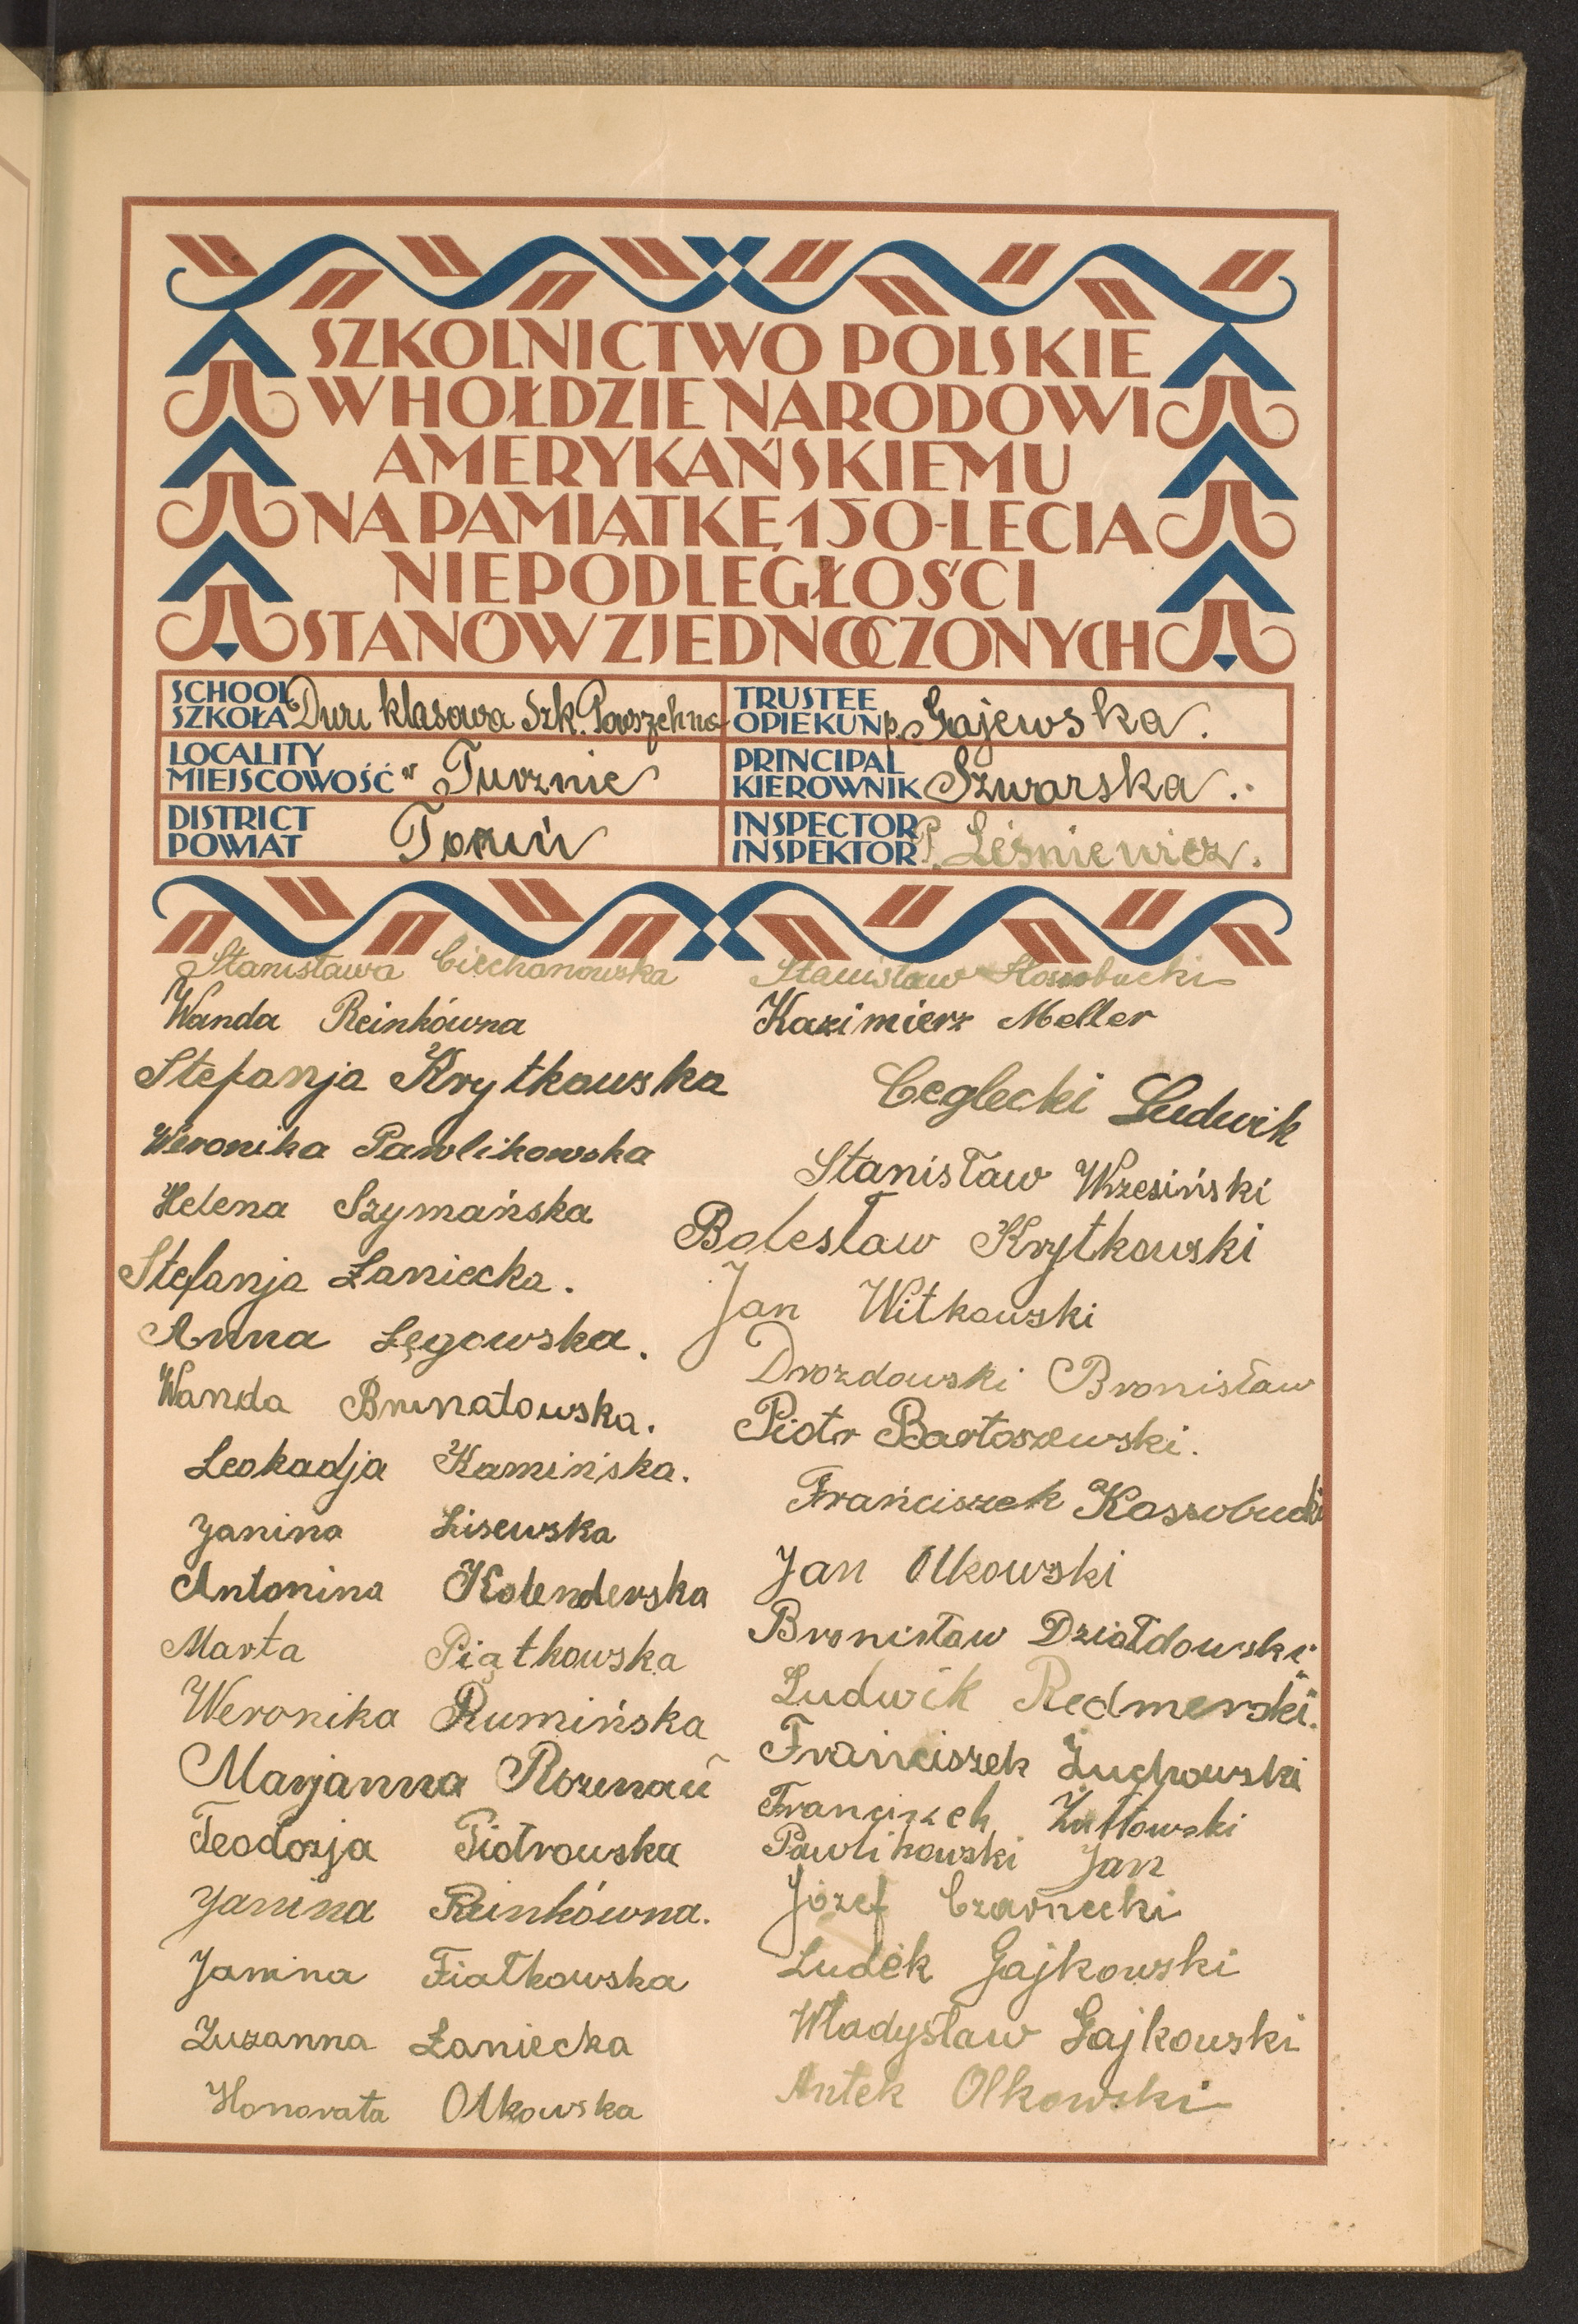 SZKOLNICTWO POLSKIE
W HOŁDZIE NARODOWI
AMERYKAŃSKIEMU
NA PAMIĄTKĘ 150-LECIA
NIEPODLEGŁOŚCI
STANÓW ZJEDNOCZONYCH
SCHOOL
SZKOŁA Dwu klasowa Szk. Powszechna
LOCALITY
MIEJSCOWOŚĆ w Turznie
DISTRICT
POWIAT Toruń
TRUSTEE
OPIEKUN p. Gajewska.
PRINCIPAL
KIEROWNIK Szwarska.
INSPECTOR
INSPEKTOR P. Leśniewicz.
Stanisława Ciechanowska
Wanda Reinkówna
Stefanja Krytkowska
Weronika Pawlikowska
Helena Szymańska
Stefanja Łaniecka.
Anna Łęgowska.
Wanda Brunatowska.
Leokadja Kamińska.
Janina Lisewska
Antonina Kolenderska
Marta Piątkowska
Weronika Rumińska
Marjanna Rozenau
Teodozja Piotrowska
Janina Reinkówna.
Janina Fiałkowska
Zuzanna Łaniecka
Honorata Olkowska
Stanisław Kossobucki
Kazimierz Meller
Ceglecki Ludwik
Stanisław Wrzesiński
Bolesław Krytkowski
Jan Witkowski
Drozdowski Bronisław
Piotr Bartoszewski.
Franciszek Kossobucki
Jan Olkowski
Bronisław Działdowski
Ludwik Redmerski.
Franciszek Żuchowski
Franciszek Żółtowski
Pawlikowski Jan
Józef Czarnecki
Ludek Gajkowski
Władysław Gajkowski
Antek Olkowski